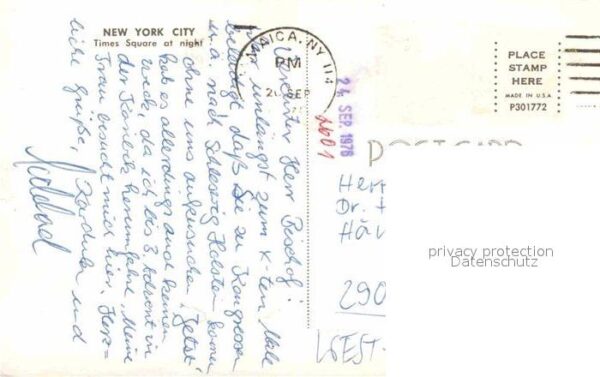 NEW YORK CITY
Times Square at night
JAMAICA, NY 114
PM
20 SEP
24. SEP. 1976
2601
PLACE
STAMP
HERE
MADE IN U.S.A
P301772
POSTCARD
Verehrter Herr Bischof!
unlängst zum x-ten Male
daß Sie zu Kongressen
u.a. nach Schleswig Holstein kamen
ohne uns aufzusuchen. Jetzt
hat es allerdings auch keinen
Zweck, da ich bis 3. Advent in
der Karibik herumfahre. Meine
Frau besucht mich hier. Herz=
liche Grüße,
und
Herr
Dr.
Hä
290
WEST-
privacy protection
Datenschutz